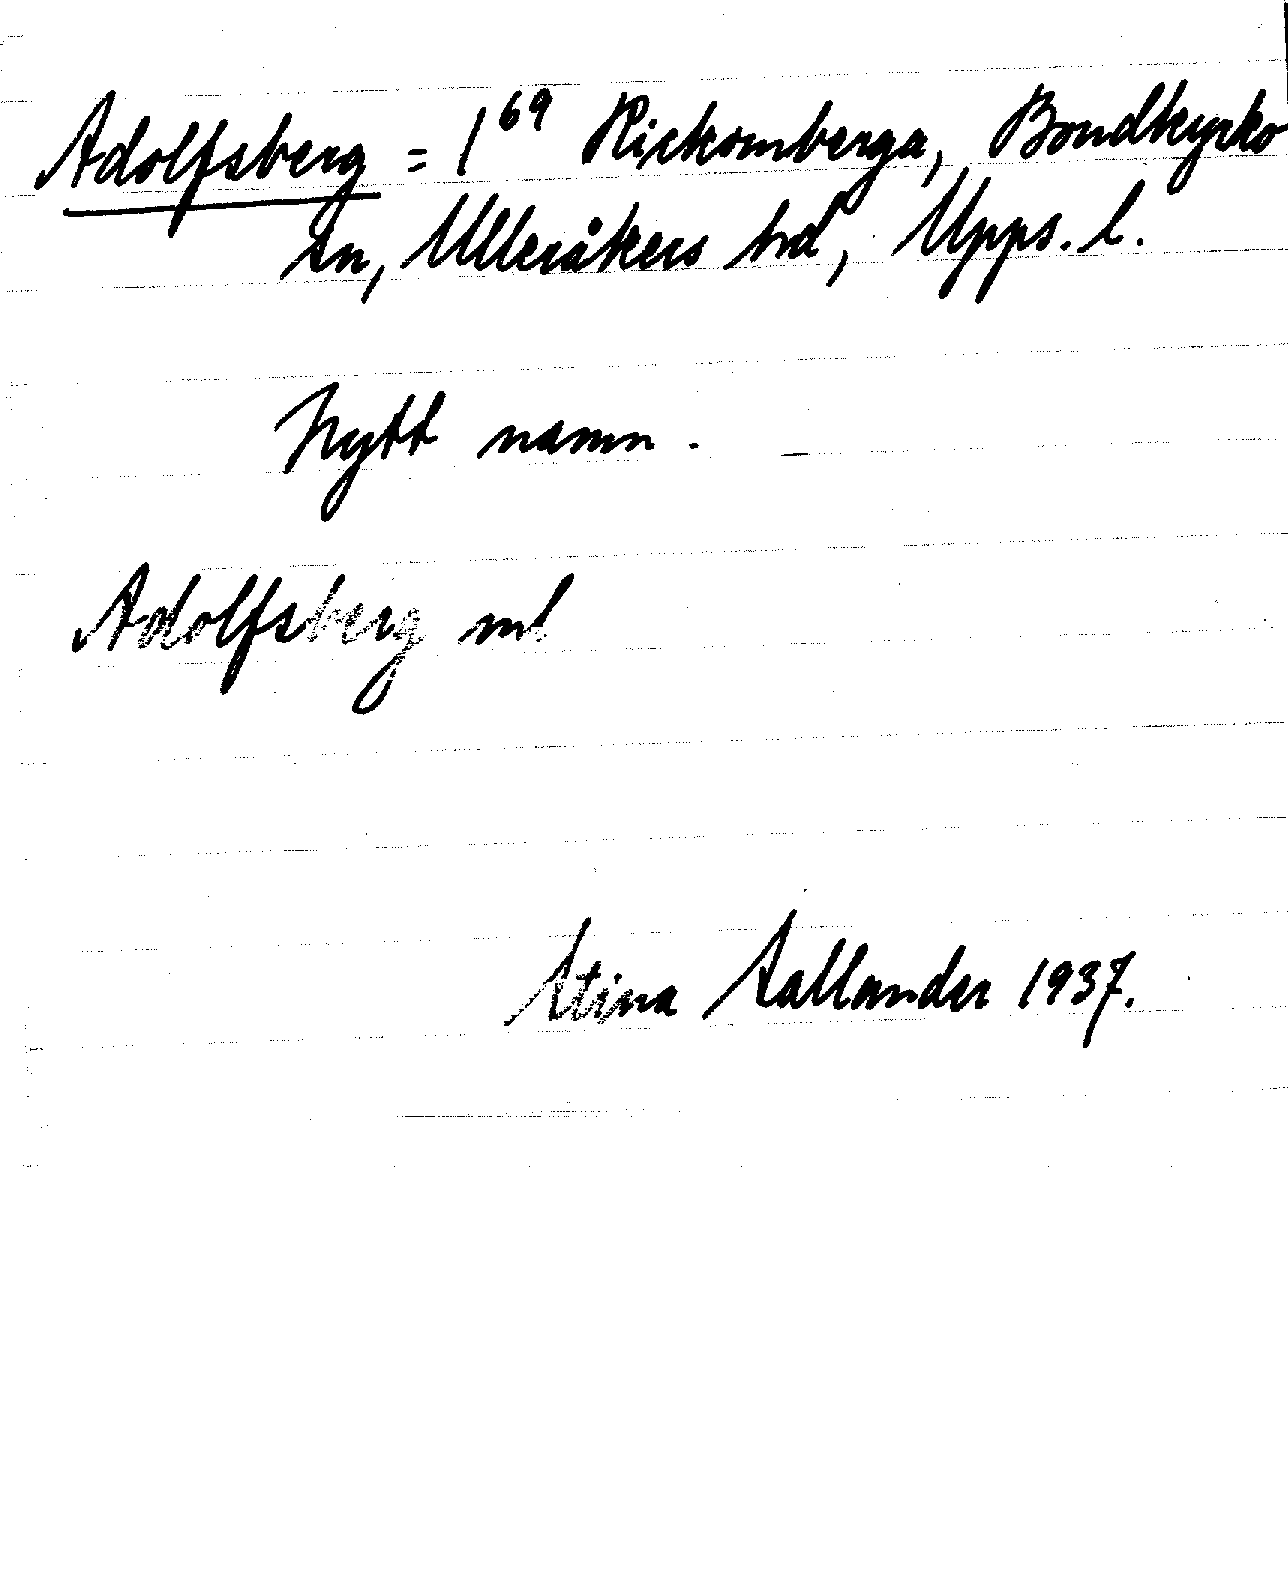 Adolfsberg = 1⁶⁹ Rickomberga, Bondkyrko
sn, Ulleråkers hd, Upps. l.
Nytt namn.
Adolfsberg ml
Stina Sallander 1937.